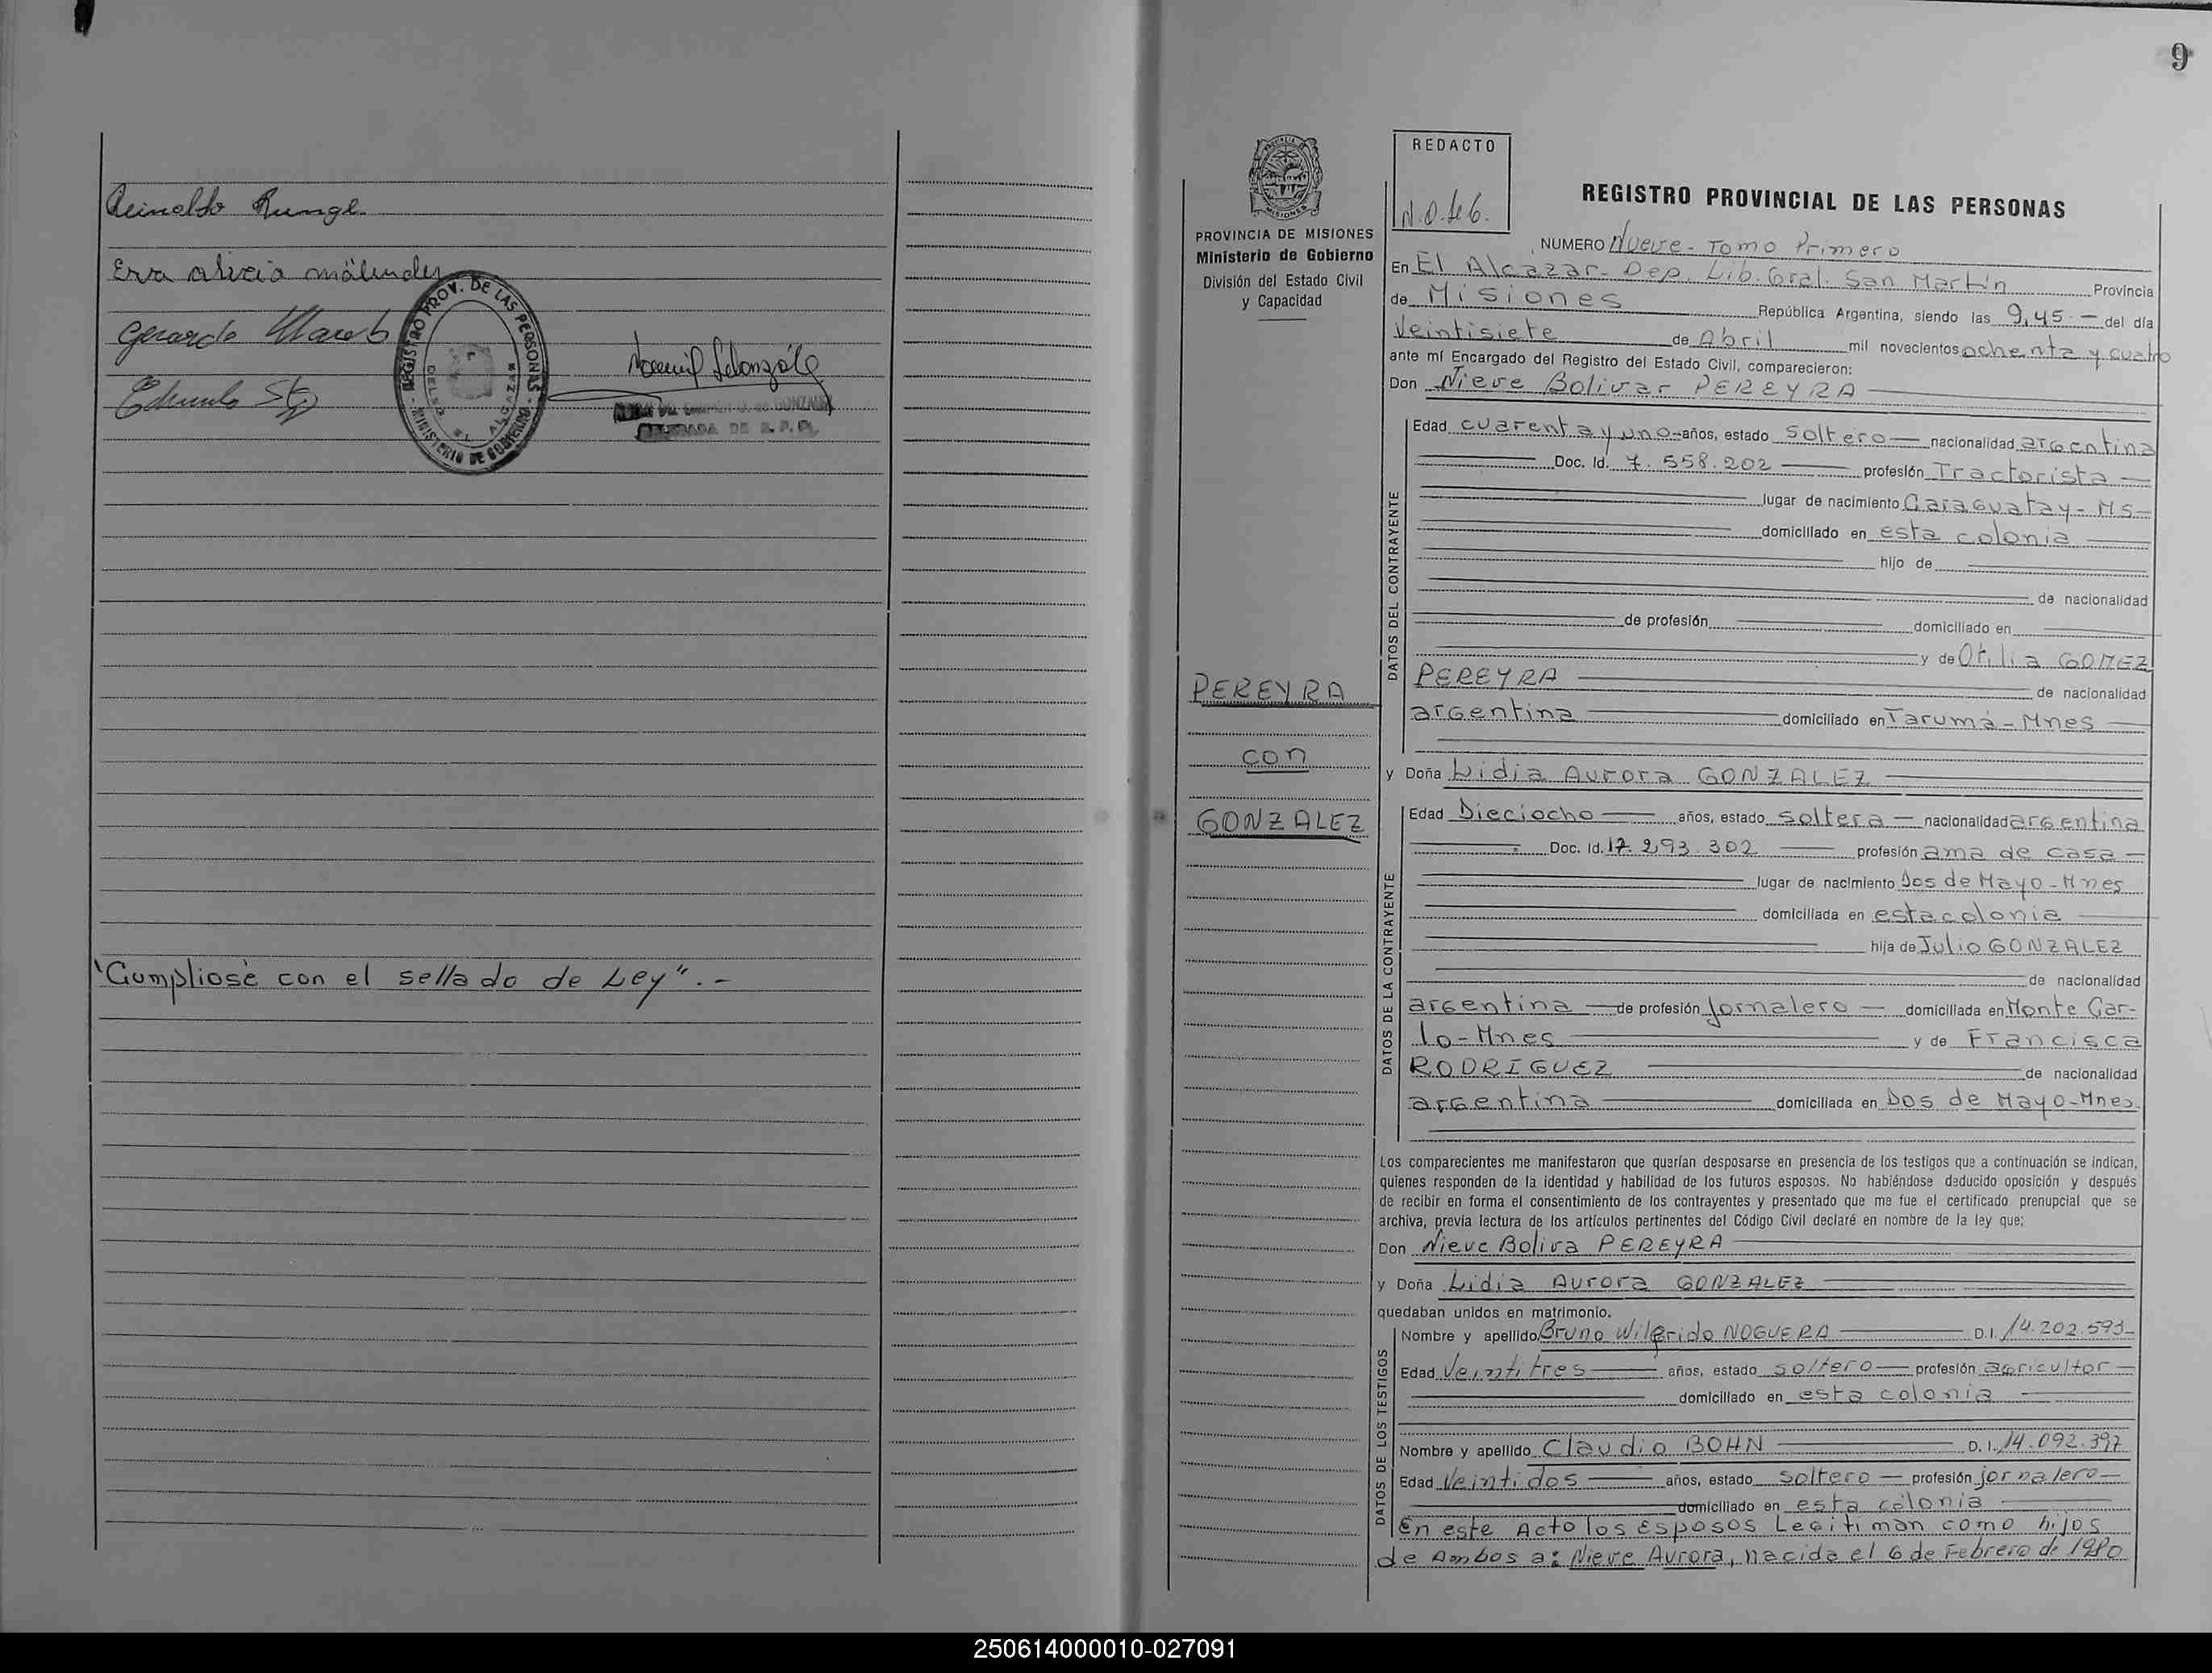 Reinaldo Runge.
Eva alicia
Gerardo
Eduardo
REGISTRO PROV. DE LAS PERSONAS
MINISTERIO DE GOBIERNO
EL ALCAZAR
"Cumpliosé con el sellado de Ley".-
9
PROVINCIA DE MISIONES
Ministerio de Gobierno
División del Estado Civil
y Capacidad
PEREYRA
con
GONZALEZ
REDACTO
N.O.de G.
REGISTRO PROVINCIAL DE LAS PERSONAS
NUMERO Nueve - Tomo Primero
En El Alcazar - Dep. Lib. Gral. San Martín Provincia
de Misiones República Argentina, siendo las 9,45 - del día
Veintisiete de Abril mil novecientos ochenta y cuatro
ante mí Encargado del Registro del Estado Civil, comparecieron:
Don Nieve Bolivar PEREYRA
DATOS DEL CONTRAYENTE
Edad cuarenta y uno años, estado soltero nacionalidad argentina
Doc. Id. 7.558.202 profesión Tractorista
lugar de nacimiento Caraguatay - Ms
domiciliado en esta colonia
hijo de
de nacionalidad
de profesión domiciliado en
y de Otilia GOMEZ
PEREYRA de nacionalidad
argentina domiciliado en Tarumá - Mnes
y Doña Lidia Aurora GONZALEZ
DATOS DE LA CONTRAYENTE
Edad Dieciocho años, estado soltera nacionalidad argentina
Doc. Id. 17.293.302 profesión ama de casa
lugar de nacimiento Dos de Mayo - Mnes
domiciliada en esta colonia
hija de Julio GONZALEZ
de nacionalidad
argentina de profesión Jornalero domiciliada en Monte Car-
lo - Mnes y de Francisca
RODRIGUEZ de nacionalidad
argentina domiciliada en Dos de Mayo - Mnes.
Los comparecientes me manifestaron que querían desposarse en presencia de los testigos que a continuación se indican,
quienes responden de la identidad y habilidad de los futuros esposos. No habiéndose deducido oposición y después
de recibir en forma el consentimiento de los contrayentes y presentado que me fue el certificado prenupcial que se
archiva, previa lectura de los artículos pertinentes del Código Civil declaré en nombre de la ley que:
Don Nieve Boliva PEREYRA
y Doña Lidia Aurora GONZALEZ
quedaban unidos en matrimonio.
DATOS DE LOS TESTIGOS
Nombre y apellido Bruno Wilfrido NOGUERA D.I. 14.202.593
Edad Veintitres años, estado soltero profesión agricultor
domiciliado en esta colonia
Nombre y apellido Claudio BOHN D.I. 14.092.397
Edad Veintidos años, estado soltero profesión jornalero
domiciliado en esta colonia
En este Acto los Esposos Legitiman como hijos
de Ambos a: Nieve Aurora, nacida el 6 de Febrero de 1980
250614000010-027091